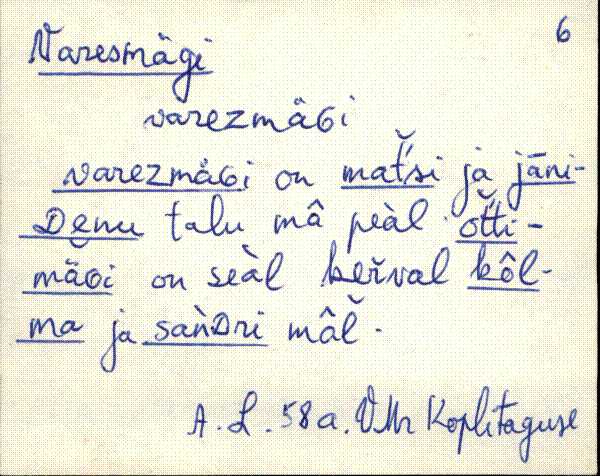 6
Varesmägi
varezmäGi
varezmäGi on mat̆'si ja jāni-
Denu talu mâ peàl. ŏt̆ti-
mäGi on seàl ker̆val kôl-
ma ja saǹDri mâl̆.
A. L. 58a. VMr Koplitaguse